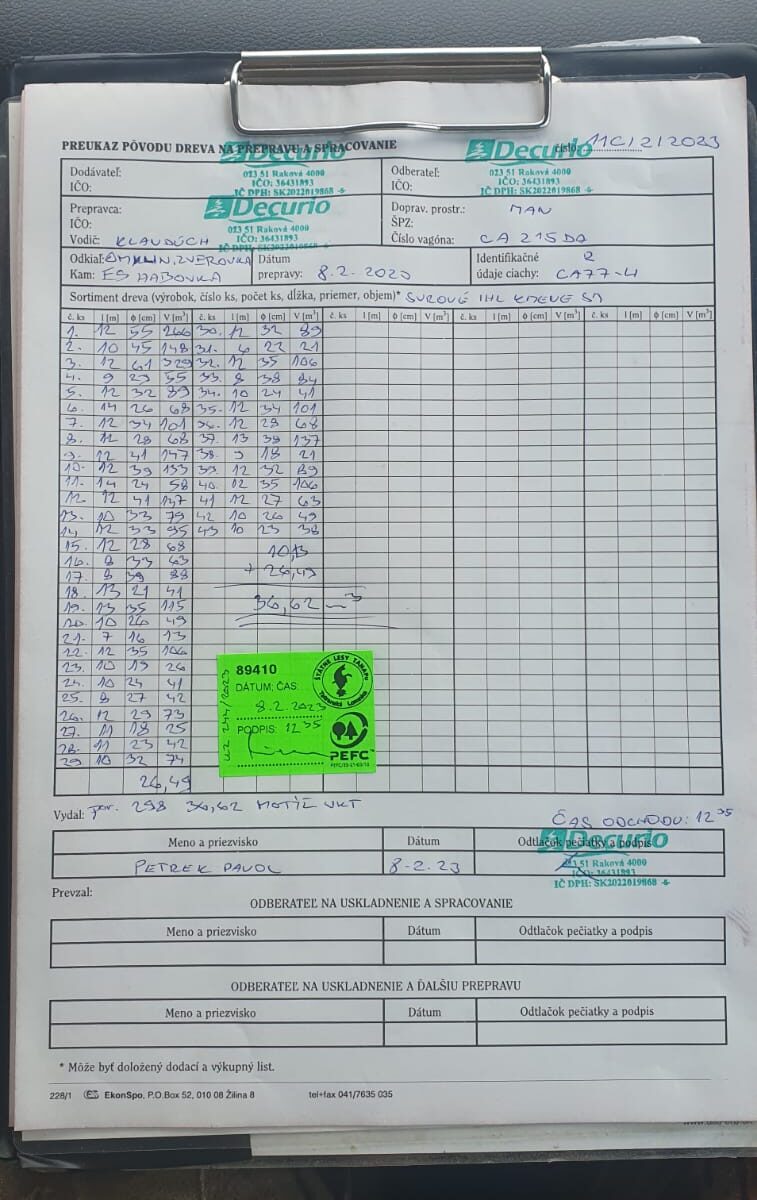 PREUKAZ PÔVODU DREVA NA PREPRAVU A SPRACOVANIE
číslo: 11C/2/2023
Dodávateľ:
IČO:
Decurio
023 51 Raková 4000
IČO: 36431893
IČ DPH: SK2022019868
Odberateľ:
IČO:
Decurio
023 51 Raková 4000
IČO: 36431893
IČ DPH: SK2022019868
Prepravca:
IČO:
Vodič: KLAUDÚCH
Decurio
023 51 Raková 4000
IČO: 36431893
IČ DPH: SK2022019868
Doprav. prostr.: MAN
ŠPZ:
Číslo vagóna: CA 215DA
Odkiaľ: OMKLIN, ZVEROVKA
Kam: ES HABOVKA
Dátum
prepravy: 8.2.2023
Identifikačné
údaje ciachy: CA77-4
Sortiment dreva (výrobok, číslo ks, počet ks, dĺžka, priemer, objem)* SUROVÉ IHL KMENE
č. ks l [m] ϕ [cm] V [m³] č. ks l [m] ϕ [cm] V [m³] č. ks l [m] ϕ [cm] V [m³] č. ks l [m] ϕ [cm] V [m³] č. ks l [m] ϕ [cm] V [m³]
1. 12 55 266 30. 12 32 89
2. 10 45 148 31. 6 22 21
3. 12 61 329 32. 12 35 106
4. 9 29 55 33. 8 38 84
5. 12 32 89 34. 10 24 41
6. 14 26 68 35. 12 34 101
7. 12 34 101 36. 12 28 68
8. 12 28 68 37. 13 39 137
9. 12 41 147 38. 9 18 21
10. 12 39 133 39. 12 32 89
11. 14 24 58 40. 12 35 106
12. 12 41 147 41 12 27 63
13. 10 33 79 42 10 26 49
14. 12 33 95 43 10 23 38
15. 12 28 68
16. 8 33 63
17. 8 39 88
18. 13 21 41
19. 13 35 115
20. 10 26 49
21. 7 16 13
22. 12 35 106
23. 10 19 26
24. 10 24 41
25. 8 27 42
26. 12 29 73
27. 11 18 25
28. 11 23 42
29 10 32 74
26,49
10,13
+ 26,49
36,62 m³
89410
DÁTUM; ČAS:
8.2.2023
PODPIS: 12 35
244/2023
ŠTÁTNE LESY TANAPU
Tatranská Lomnica
PEFC
Vydal: por. 298 36,62 MOTÍĽ VKT
ČAS ODCHODU: 12 35
Meno a priezvisko Dátum Odtlačok pečiatky a podpis
PETREK PAVOL 8.2.23
Decurio
023 51 Raková 4000
IČO: 36431893
IČ DPH: SK2022019868
Prevzal:
ODBERATEĽ NA USKLADNENIE A SPRACOVANIE
Meno a priezvisko Dátum Odtlačok pečiatky a podpis
ODBERATEĽ NA USKLADNENIE A ĎALŠIU PREPRAVU
Meno a priezvisko Dátum Odtlačok pečiatky a podpis
* Môže byť doložený dodací a výkupný list.
228/1 EkonSpo, P.O.Box 52, 010 08 Žilina 8 tel+fax 041/7635 035